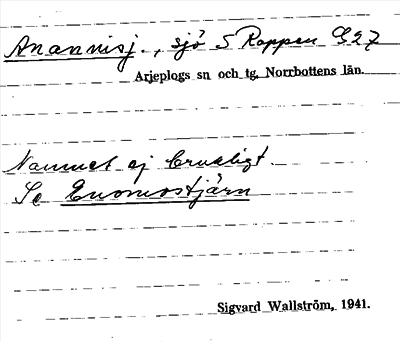 Anannisj., sjö S Rappen G 27
Arjeplogs sn och tg, Norrbottens län.
Namnet ej brukligt.
Se Enomostjärn
Sigvard Wallström, 1941.